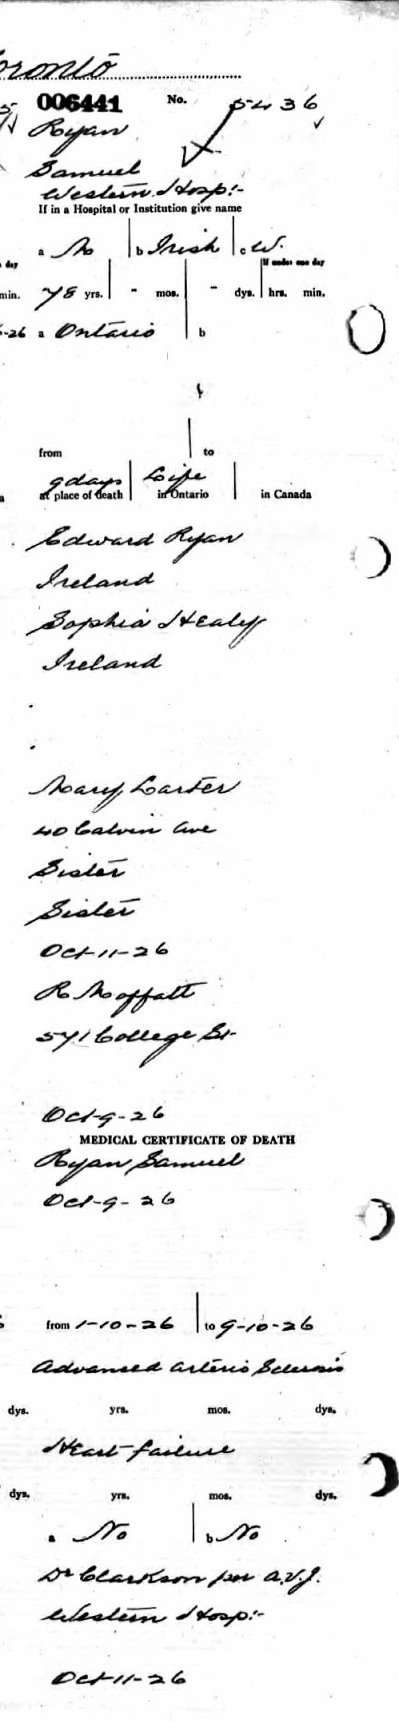 Toronto
006441 No. 5436
Ryan
Samuel
Western Hosp:-
If in a Hospital or Institution give name
a M b Irish c W.
day If under one day
min. 78 yrs. - mos. - dys. hrs. min.
-26 a Ontario b
from to
9 days Life
at place of death in Ontario in Canada
Edward Ryan
Ireland
Sophia Healy
Ireland
Mary Larter
40 Calvin Ave
Sister
Sister
Oct-11-26
R Moffatt
571 College St-
Oct-9-26
MEDICAL CERTIFICATE OF DEATH
Ryan Samuel
Oct-9-26
from 1-10-26 to 9-10-26
Advanced arterio Sclerosis
dys. yrs. mos. dys.
Heart failure
dys. yrs. mos. dys.
a No b No
Dr Clarkson per A.V.J.
Western Hosp:-
Oct-11-26